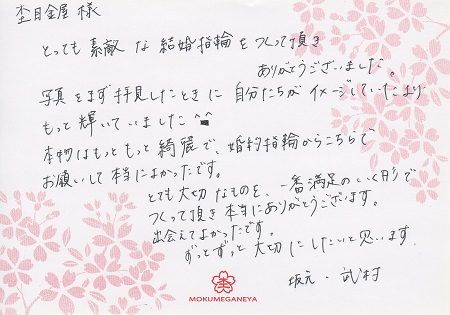 杢目金屋 様
とっても 素敵 な 結婚指輪 を つくって頂き
ありがとうございました。
写真 を まず 拝見したときに 自分たちが イメージしていたより
もっと 輝いて いました^^
本物は もっと もっと 綺麗 で、婚約指輪 から こちらで
お願いして 本当に よかったです。
とても 大切 な ものを、一番満足 の いく形 で
つくって頂き 本当に ありがとうございます。
出会えて よかったです。
ずっと ずっと 大切 に したいと 思います
坂元・武村
MOKUMEGANEYA